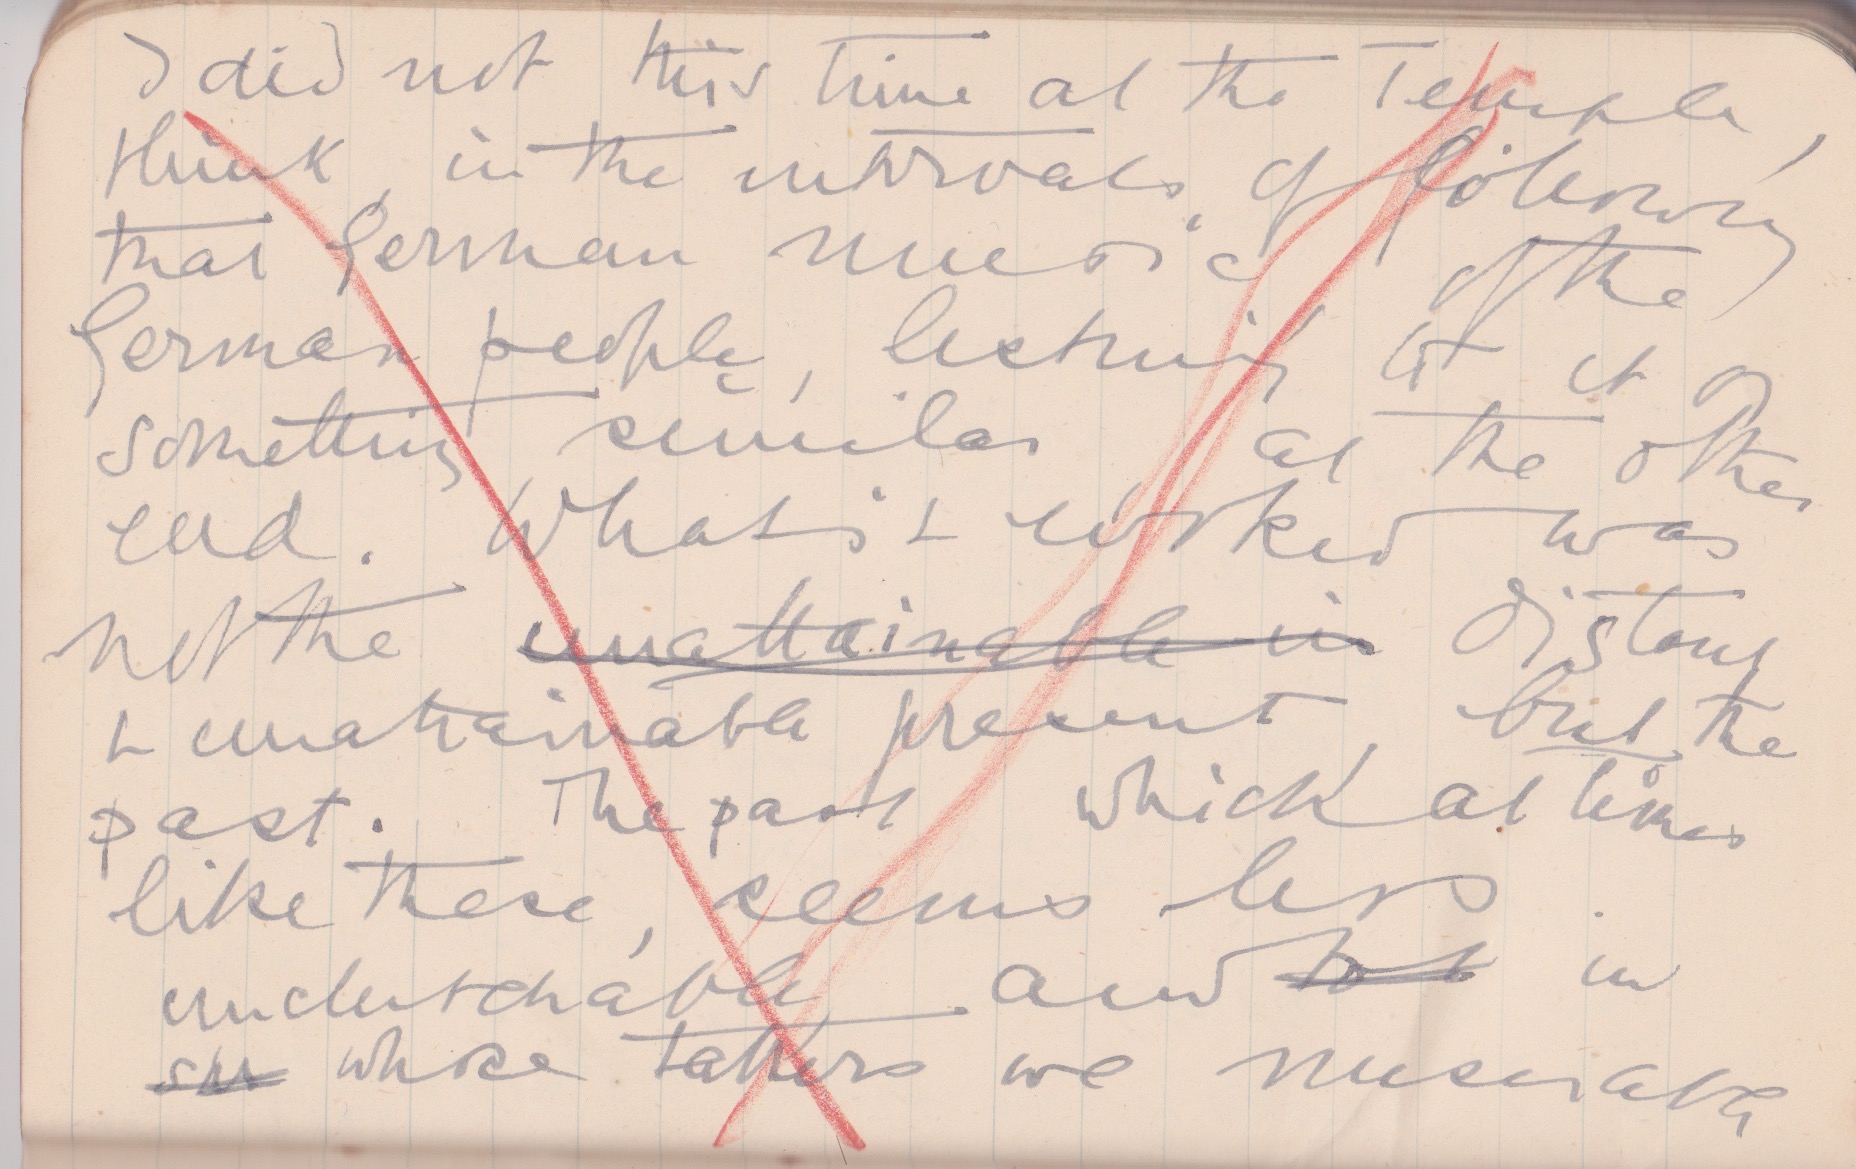 I did not this time at the Temple,
think, in the intervals, of following
that German music of the
German people, listening to it or
something similar at the other
end. What is & worked was
not the unattainable in distant
& unattainable present, but the
past. The past which at times
like these, seems less
unclutchable and but in
whose tatters we miserably